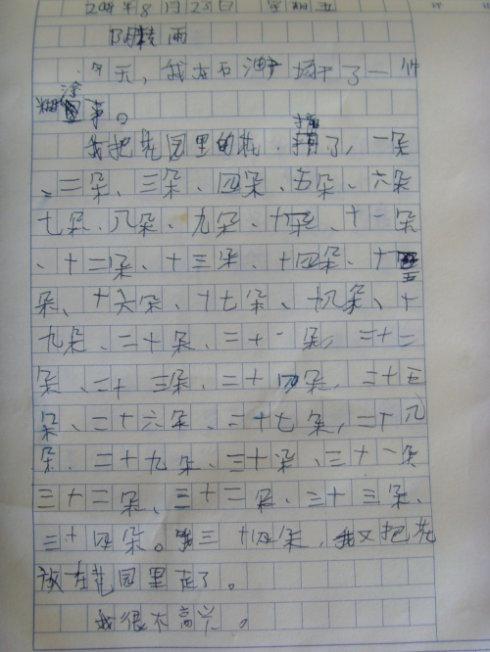 年8月25日 星期五
阴转雨
今天，我在石油广场干了一件
糊涂事。
我把花园里的花，摘了，一朵
、二朵、三朵、四朵、五朵、六朵
七朵、八朵、九朵、十朵、十一朵
、十二朵、十三朵、十四朵、十五
朵、十六朵、十七朵、十八朵、十
九朵、二十朵、二十一朵，二十二
朵、二十三朵、二十四朵，二十五
朵、二十六朵、二十七朵，二十八
朵、二十九朵、三十朵、三十一朵
三十二朵、三十二朵、三十三朵、
三十四朵。三十四朵，我又把花
放在花园里走了。
我很不高兴。